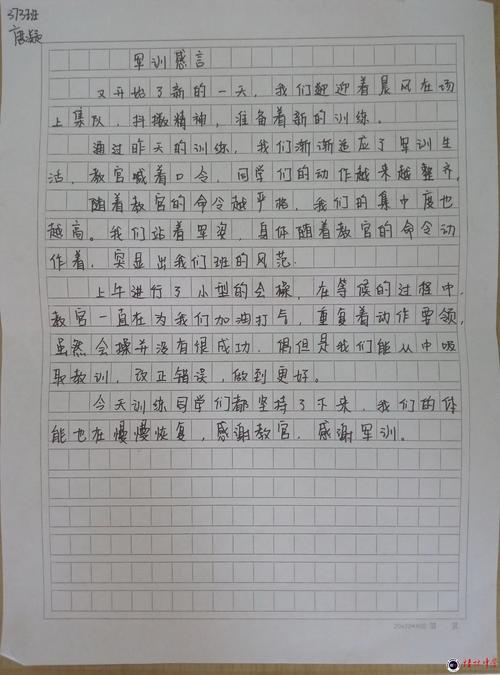 373班
唐凝
军训感言
又开始了新的一天，我们迎着晨风在场
上集队，抖擞精神，准备着新的训练。
通过昨天的训练，我们渐渐适应了军训生
活，教官喊着口令，同学们的动作越来越整齐，
随着教官的命令越严格，我们的集中度也
越高。我们站着军姿，身体随着教官的命令动
作着，突显出我们班的风范.
上午进行了小型的会操，在等候的过程中，
教官一直在为我们加油打气，重复着动作要领，
虽然会操并没有很成功，但是我们能从中吸
取教训，改正错误，做到更好。
今天训练同学们都坚持了下来，我们的体
能也在慢慢恢复，感谢教官，感谢军训。
桂林中学